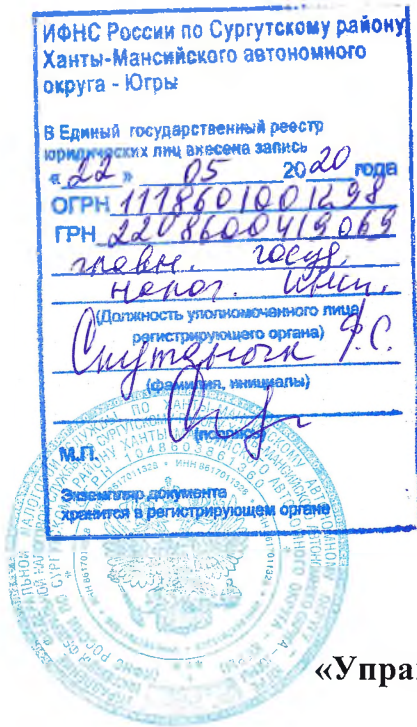 ИФНС России по Сургутскому району
Ханты-Мансийского автономного
округа - Югры
В Единый государственный реестр
юридических лиц внесена запись
« 22 » 05 20 20 года
ОГРН 1118601001298
ГРН 2208600419069
главн. госуд.
налог. инсп.
(Должность уполномоченного лица
регистрирующего органа)
Ф.С.
(фамилия, инициалы)
(подпись)
М.П.
Экземпляр документа
хранится в регистрирующем органе
«Упра